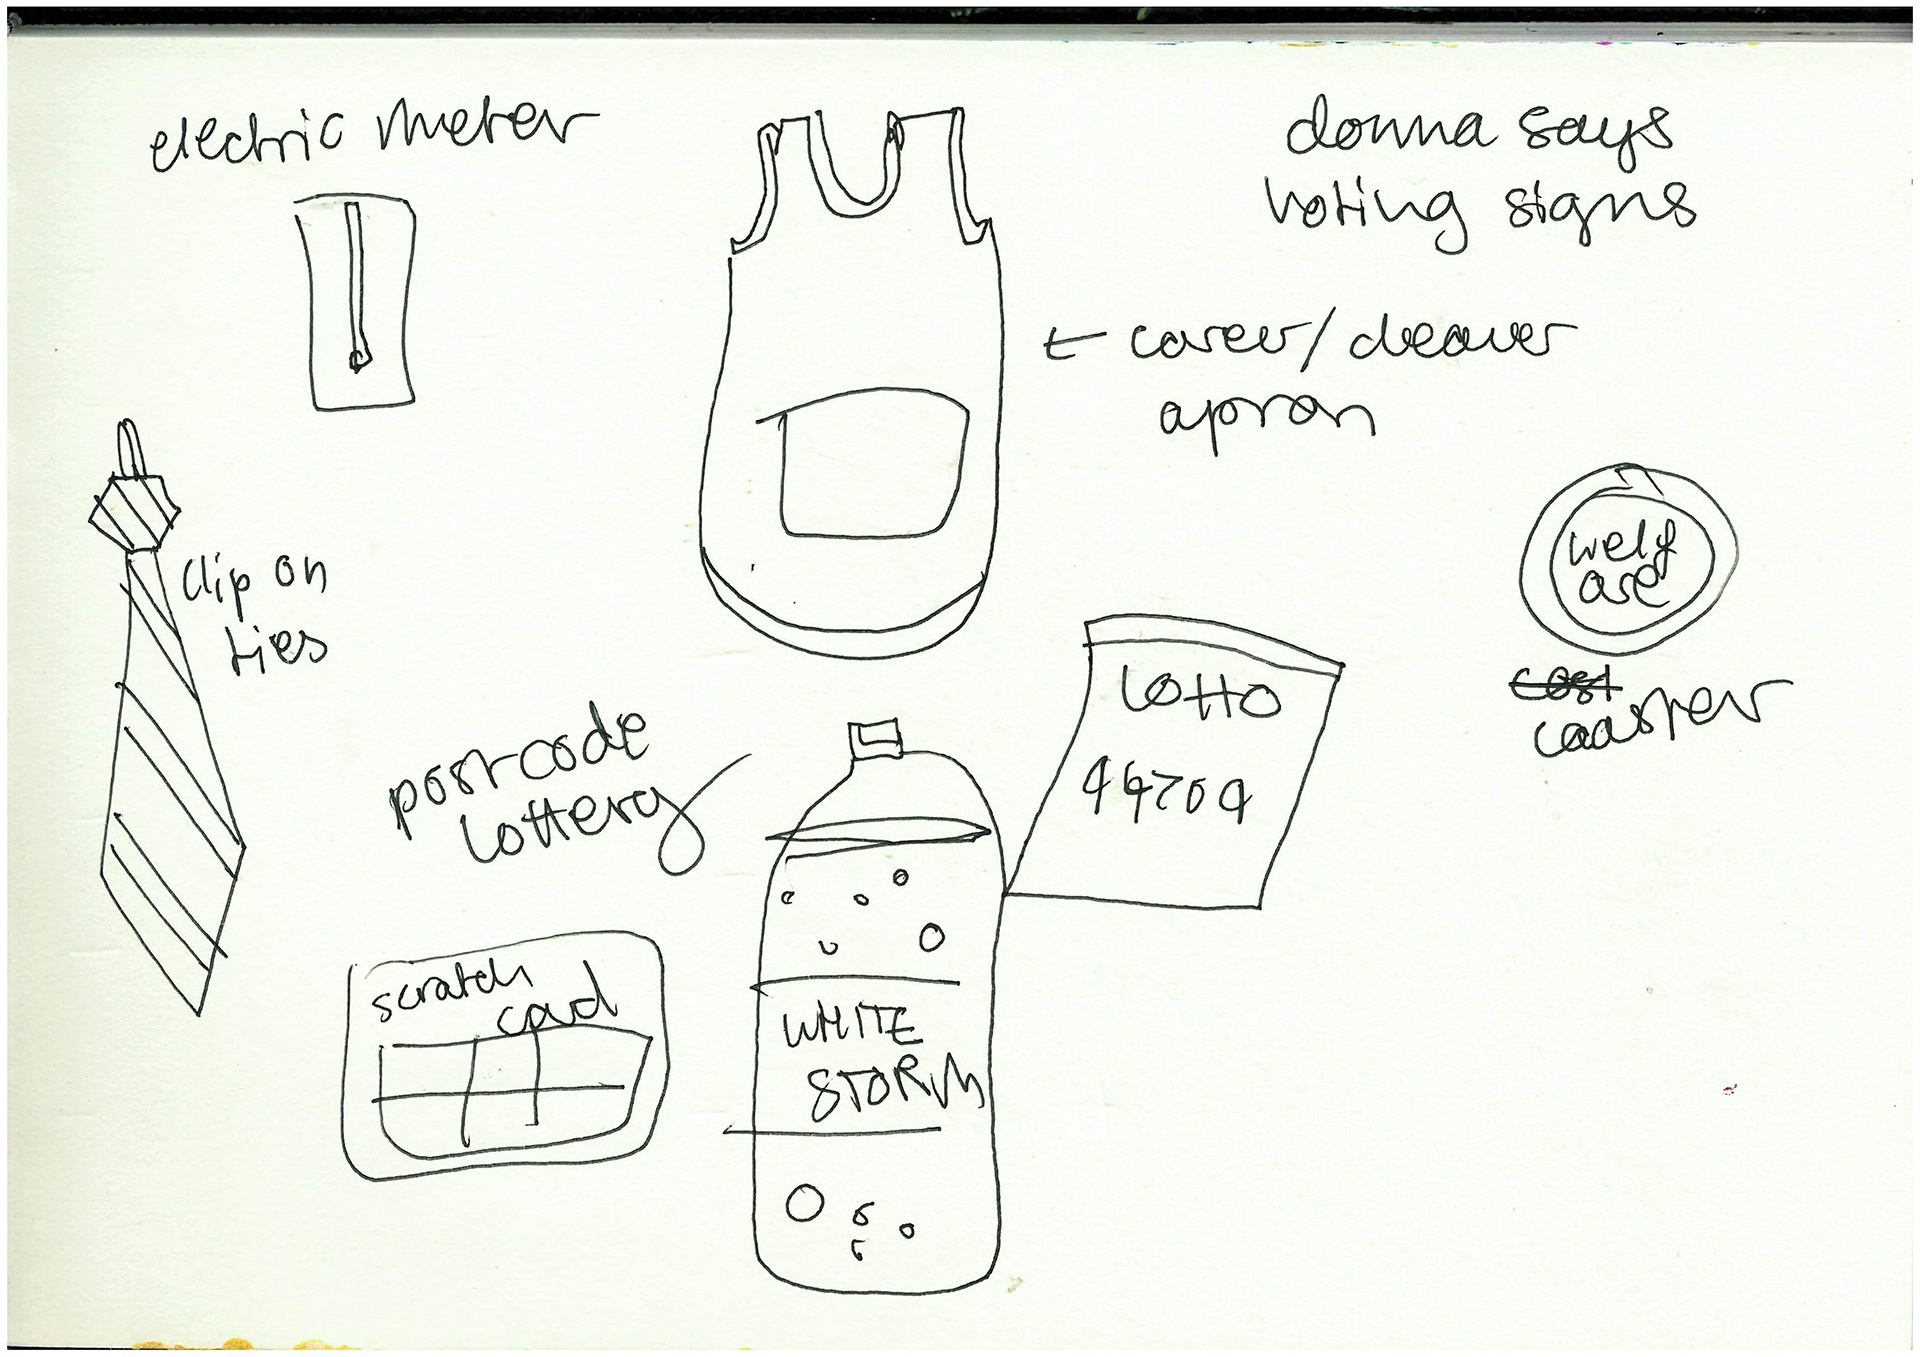 electric meter
donna says
voting signs
← carer/cleaner
apron
clip on
ties
welf
are
cost
coaster
postcode
lottery
LOTTO
44704
scratch
card
WHITE
STORM